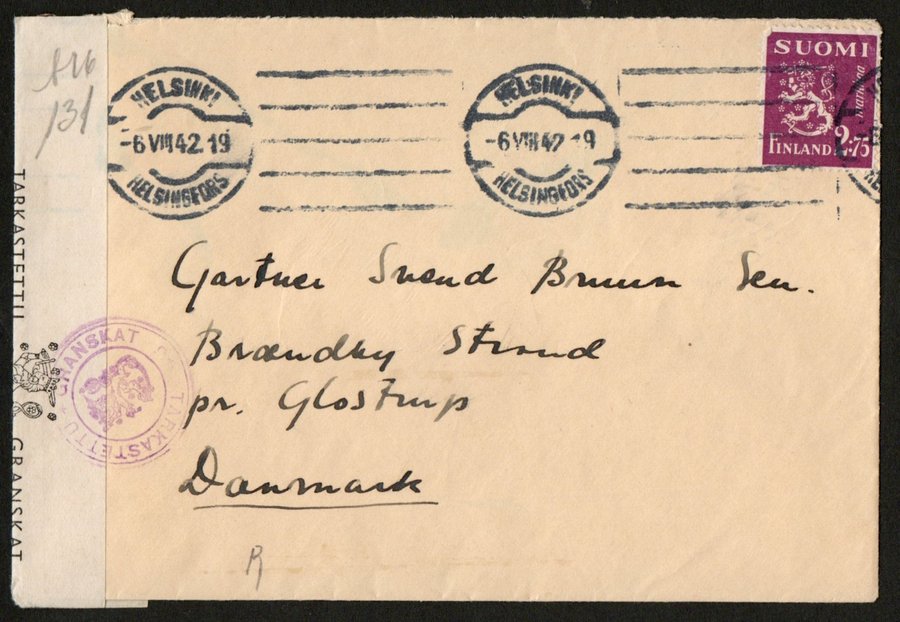 A16
131
HELSINKI
-6 VIII 42 19
HELSINGFORS
HELSINKI
-6 VIII 42 19
HELSINGFORS
SUOMI
markkaa
FINLAND 2:75
TARKASTETTU
GRANSKAT
GRANSKAT
TARKASTETTU
TARKASTETTU
Gartner Svend Bruun Sen.
Brøndby Strand
pr. Glostrup
Danmark
R